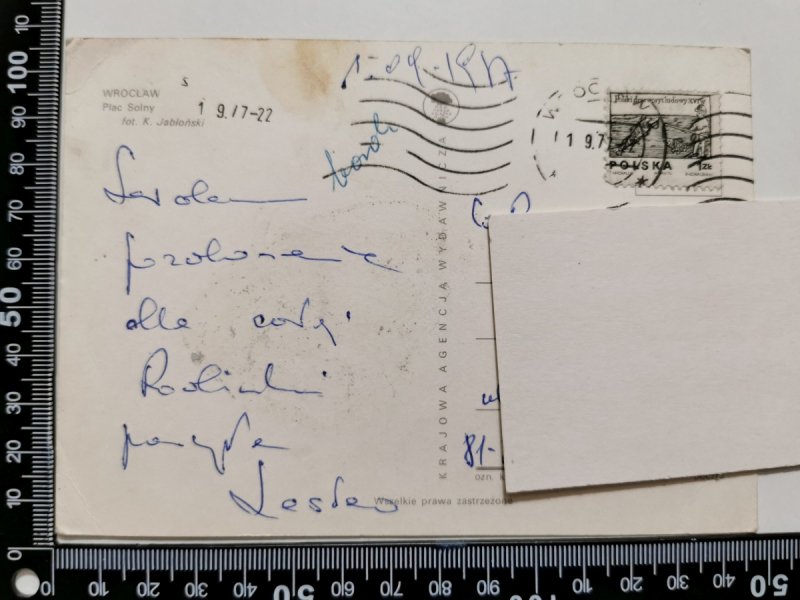 WROCŁAW
Plac Solny
fot. K. Jabłoński
1-09-1977
1 9.77-22
1 9.7
POLSKA 1ZŁ
Serdeczne
pozdrowienia
dla całej
Rodzinki
przesyła
Lesław
KRAJOWA AGENCJA WYDAWNICZA
81-
Wszelkie prawa zastrzeżone
0 10 20 30 40 50 60 70 80 90 100
0 10 20 30 40 50 60 70 80 90